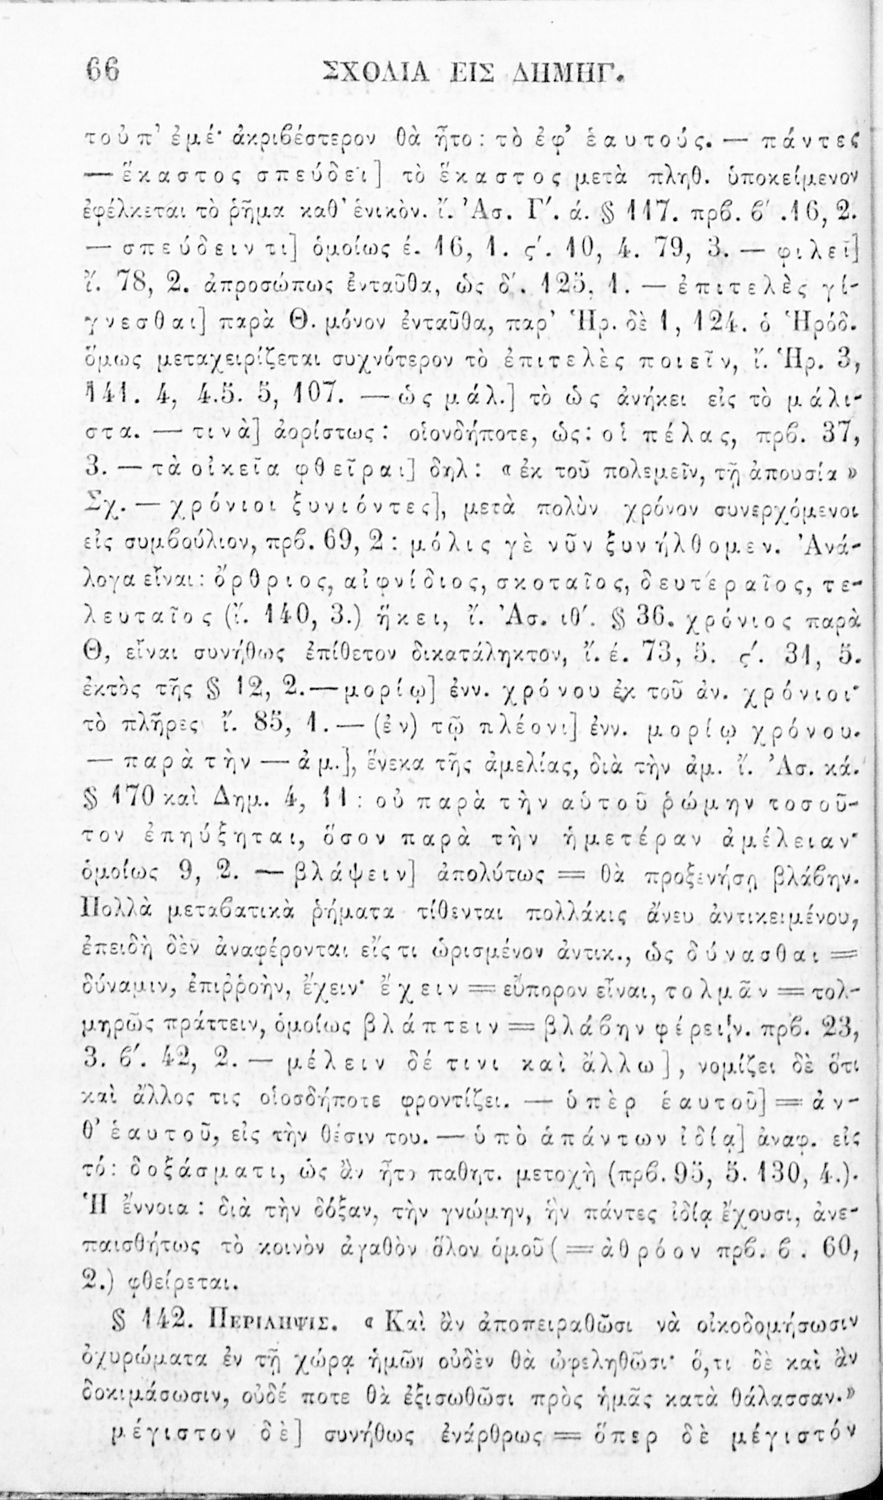 66 ΣΧΟΛΙΑ ΕΙΣ ΔΗΜΗΓ.
τοὐπ' ἐμέ· ἀκριβέστερον θὰ ἦτο: τὸ ἐφ' ἑαυτούς. — πάντες
— ἕκαστος σπεύδει] τὸ ἕκαστος μετὰ πληθ. ὑποκείμενον
ἐφέλκεται τὸ ῥῆμα καθ' ἑνικὸν. ἴ. Ἀσ. Γ'. ά. § 117. πρβ. β' .16, 2.
— σπεύδειν τι] ὁμοίως έ. 16, 1. ς'. 10, 4. 79, 3. — φιλεῖ]
ἴ. 78, 2. ἀπροσώπως ἐνταῦθα, ὡς δ'. 125, 1. — ἐπιτελὲς γί-
γνεσθαι] παρὰ Θ. μόνον ἐνταῦθα, παρ' Ἡρ. δὲ 1, 124. ὁ Ἡρόδ.
ὅμως μεταχειρίζεται συχνότερον τὸ ἐπιτελὲς ποιεῖν, ἴ. Ἡρ. 3,
141. 4, 4.5. 5, 107. — ὡς μάλ.] τὸ ὡς ἀνήκει εἰς τὸ μάλι-
στα. — τινὰ] ἀορίστως: οἱονδήποτε, ὡς: οἱ πέλας, πρβ. 37,
3. — τὰ οἰκεῖα φθεῖραι] δηλ: « ἐκ τοῦ πολεμεῖν, τῇ ἀπουσίᾳ »
Σχ. — χρόνιοι ξυνιόντες], μετὰ πολὺν χρόνον συνερχόμενοι
εἰς συμβούλιον, πρβ. 69, 2: μόλις γὲ νῦν ξυνήλθομεν. Ἀνά-
λογα εἶναι: ὄρθριος, αἰφνίδιος, σκοταῖος, δευτεραῖος, τε-
λευταῖος (ἴ. 140, 3.) ἥκει, ἴ. Ἀσ. ιθ'. § 36. χρόνιος παρὰ
Θ, εἶναι συνήθως ἐπίθετον δικατάληκτον, ἴ. έ. 73, 5. ς'. 31, 5.
ἐκτὸς τῆς § 12, 2. — μορίῳ] ἐνν. χρόνου ἐκ τοῦ ἀν. χρόνιοι·
τὸ πλῆρες ἴ. 85, 1. — (ἐν) τῷ πλέονι] ἐνν. μορίῳ χρόνου.
— παρὰ τὴν — ἀμ.], ἕνεκα τῆς ἀμελίας, διὰ τὴν ἀμ. ἴ. Ἀσ. κά.
§ 170 καὶ Δημ. 4, 11: οὐ παρὰ τὴν αὑτοῦ ῥώμην τοσοῦ-
τον ἐπηύξηται, ὅσον παρὰ τὴν ἡμετέραν ἀμέλειαν·
ὁμοίως 9, 2. — βλάψειν] ἀπολύτως = θὰ προξενήσῃ βλάβην.
Πολλὰ μεταβατικὰ ῥήματα τίθενται πολλάκις ἄνευ ἀντικειμένου,
ἐπειδὴ δὲν ἀναφέρονται εἴς τι ὡρισμένον ἀντικ., ὡς δύνασθαι =
δύναμιν, ἐπιῤῥοὴν, ἔχειν· ἔχειν = εὔπορον εἶναι, τολμᾶν = τολ-
μηρῶς πράττειν, ὁμοίως βλάπτειν = βλάβην φέρειν. πρβ. 23,
3. β'. 42, 2. — μέλειν δέ τινι καὶ ἄλλω], νομίζει δὲ ὅτι
καὶ ἄλλος τις οἱοσδήποτε φροντίζει. — ὑπὲρ ἑαυτοῦ] = ἀν-
θ' ἑαυτοῦ, εἰς τὴν θέσιν του. — ὑπὸ ἁπάντων ἰδίᾳ] ἀναφ. εἰς
τό: δοξάσματι, ὡς ἂν ἦτο παθητ. μετοχὴ (πρβ. 95, 5. 130, 4.).
Ἡ ἔννοια: διὰ τὴν δόξαν, τὴν γνώμην, ἣν πάντες ἰδίᾳ ἔχουσι, ἀνε-
παισθήτως τὸ κοινὸν ἀγαθὸν ὅλον ὁμοῦ (= ἀθρόον πρβ. β . 60,
2.) φθείρεται.
§ 142. ΠΕΡΙΛΗΨΙΣ. « Καὶ ἂν ἀποπειραθῶσι νὰ οἰκοδομήσωσιν
ὀχυρώματα ἐν τῇ χώρᾳ ἡμῶν οὐδὲν θὰ ὠφεληθῶσι· ὅ,τι δὲ καὶ ἂν
δοκιμάσωσιν, οὐδέ ποτε θὰ ἐξισωθῶσι πρὸς ἡμᾶς κατὰ θάλασσαν.»
μέγιστον δὲ] συνήθως ἐνάρθρως = ὅπερ δὲ μέγιστόν